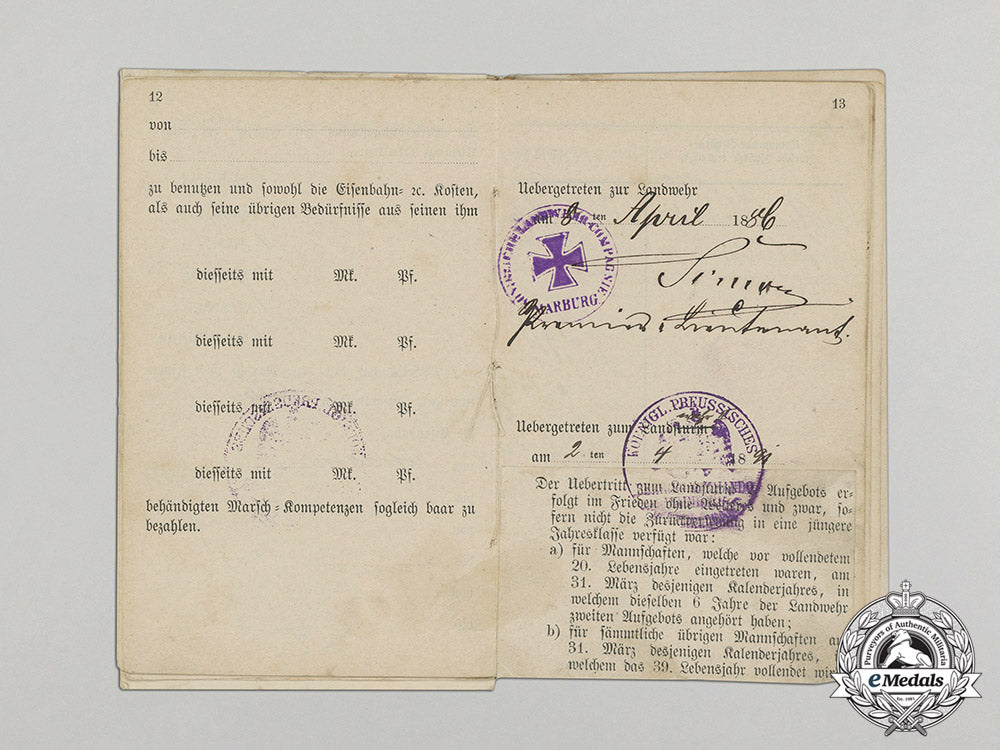 12
von
bis
zu benutzen und sowohl die Eisenbahn- ꝛc. Kosten,
als auch seine übrigen Bedürfnisse aus seinen ihm
diesseits mit Mk. Pf.
diesseits mit Mk. Pf.
diesseits mit Mk. Pf.
diesseits mit Mk. Pf.
behändigten Marsch-Kompetenzen sogleich baar zu
bezahlen.
13
Uebergetreten zur Landwehr
ten April 1886
LANDWEHR-COMPAGNIE
MARBURG
Simon
Premier-Lieutenant.
KOENIGL. PREUSSISCHES
Uebergetreten zum Landsturm
am 2 ten 4 18
Der Uebertritt zum Landsturm Aufgebots er-
folgt im Frieden ohne Weiteres und zwar, so-
fern nicht die Zurückversetzung in eine jüngere
Jahresklasse verfügt war:
a) für Mannschaften, welche vor vollendetem
20. Lebensjahre eingetreten waren, am
31. März desjenigen Kalenderjahres, in
welchem dieselben 6 Jahre der Landwehr
zweiten Aufgebots angehört haben;
b) für sämmtliche übrigen Mannschaften
31. März desjenigen Kalenderjahres,
welchem das 39. Lebensjahr vollendet
Purveyors of Authentic Militaria
eMedals
Est. 1981